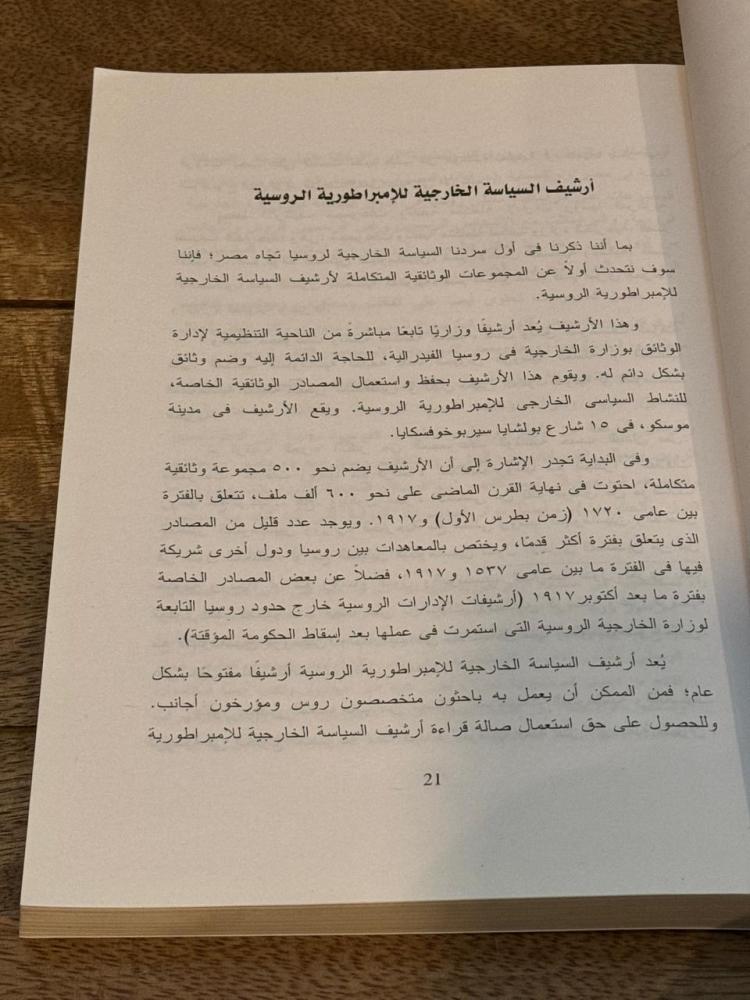 أرشيف السياسة الخارجية للإمبراطورية الروسية
بما أننا ذكرنا فى أول سردنا السياسة الخارجية لروسيا تجاه مصر؛ فإننا
سوف نتحدث أولاً عن المجموعات الوثائقية المتكاملة لأرشيف السياسة الخارجية
للإمبراطورية الروسية.
وهذا الأرشيف يُعد أرشيفًا وزاريًا تابعًا مباشرةً من الناحية التنظيمية لإدارة
الوثائق بوزارة الخارجية فى روسيا الفيدرالية، للحاجة الدائمة إليه وضم وثائق
بشكل دائم له. ويقوم هذا الأرشيف بحفظ واستعمال المصادر الوثائقية الخاصة،
للنشاط السياسى الخارجى للإمبراطورية الروسية. ويقع الأرشيف فى مدينة
موسكو، فى ١٥ شارع بولشايا سيربوخوفسكايا.
وفى البداية تجدر الإشارة إلى أن الأرشيف يضم نحو ٥٠٠ مجموعة وثائقية
متكاملة، احتوت فى نهاية القرن الماضى على نحو ٦٠٠ ألف ملف، تتعلق بالفترة
بين عامى ١٧٢٠ (زمن بطرس الأول) و١٩١٧. ويوجد عدد قليل من المصادر
الذى يتعلق بفترة أكثر قدمًا، ويختص بالمعاهدات بين روسيا ودول أخرى شريكة
فيها فى الفترة ما بين عامى ١٥٣٧ و١٩١٧، فضلاً عن بعض المصادر الخاصة
بفترة ما بعد أكتوبر ١٩١٧ (أرشيفات الإدارات الروسية خارج حدود روسيا التابعة
لوزارة الخارجية الروسية التى استمرت فى عملها بعد إسقاط الحكومة المؤقتة).
يُعد أرشيف السياسة الخارجية للإمبراطورية الروسية أرشيفًا مفتوحًا بشكل
عام؛ فمن الممكن أن يعمل به باحثون متخصصون روس ومؤرخون أجانب.
وللحصول على حق استعمال صالة قراءة أرشيف السياسة الخارجية للإمبراطورية
21